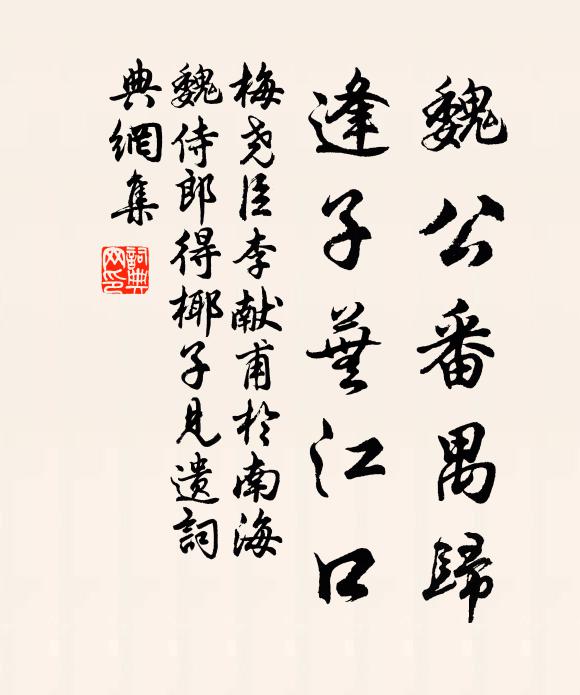 魏公番禺歸
逢子蕪江口
梅堯臣李献甫於南海
魏侍郎得椰子見遺詞
典網集
詞典網印